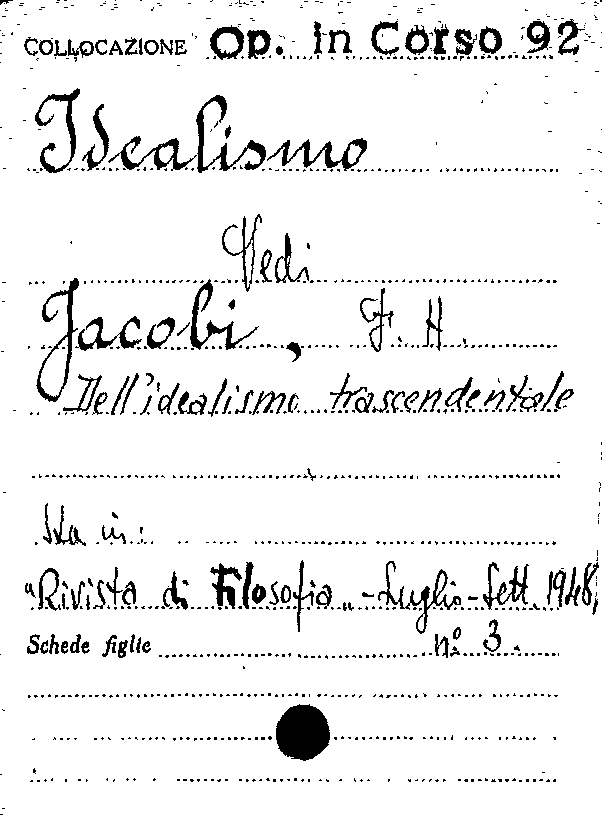 COLLOCAZIONE Op. in Corso 92
Idealismo
Vedi
Jacobi, F. H.
Dell'idealismo trascendentale
Sta in:
"Rivista di Filosofia„ - Luglio-Sett. 1948,
Schede figlie n° 3.